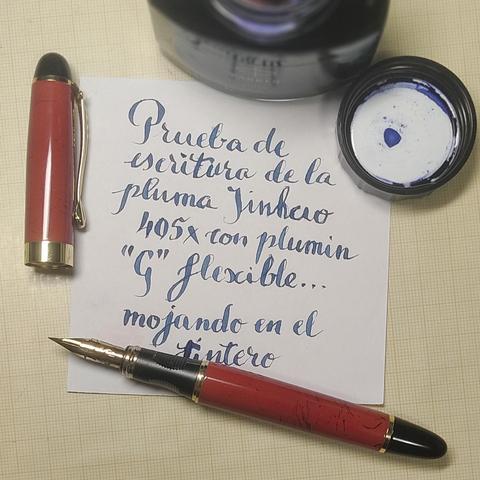 Prueba de
escritura de la
pluma Jinhao
450x con plumin
"G" flexible...
mojando en el
tintero